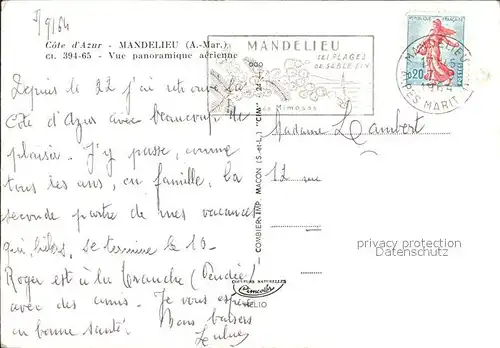 5/9/64
Côte d'Azur - MANDELIEU (A.-Mar.)
CI. 394-65 - Vue panoramique aérienne
MANDELIEU
SES PLAGES
DE SABLE FIN
ses Mimosas
REPUBLIQUE FRANÇAISE
0,20
MANDELIEU
ALPES MARITIMES
Depuis le 22 j'ai retrouvé la
Côte d'Azur avec beaucoup de
plaisir. J'y passe, comme
tous les ans, en famille, la
seconde partie de mes vacances
qui, hélas, se termine le 10-
Roger est à la Tranche (Vendée)
avec des amis. Je vous espère
en bonne santé. Bons baisers
COMBIER IMP. MACON (S.-et-L.) "CIM"
COULEURS NATURELLES
Cimcolor
HELIO
Madame Lambert
12 rue
privacy protection
Datenschutz